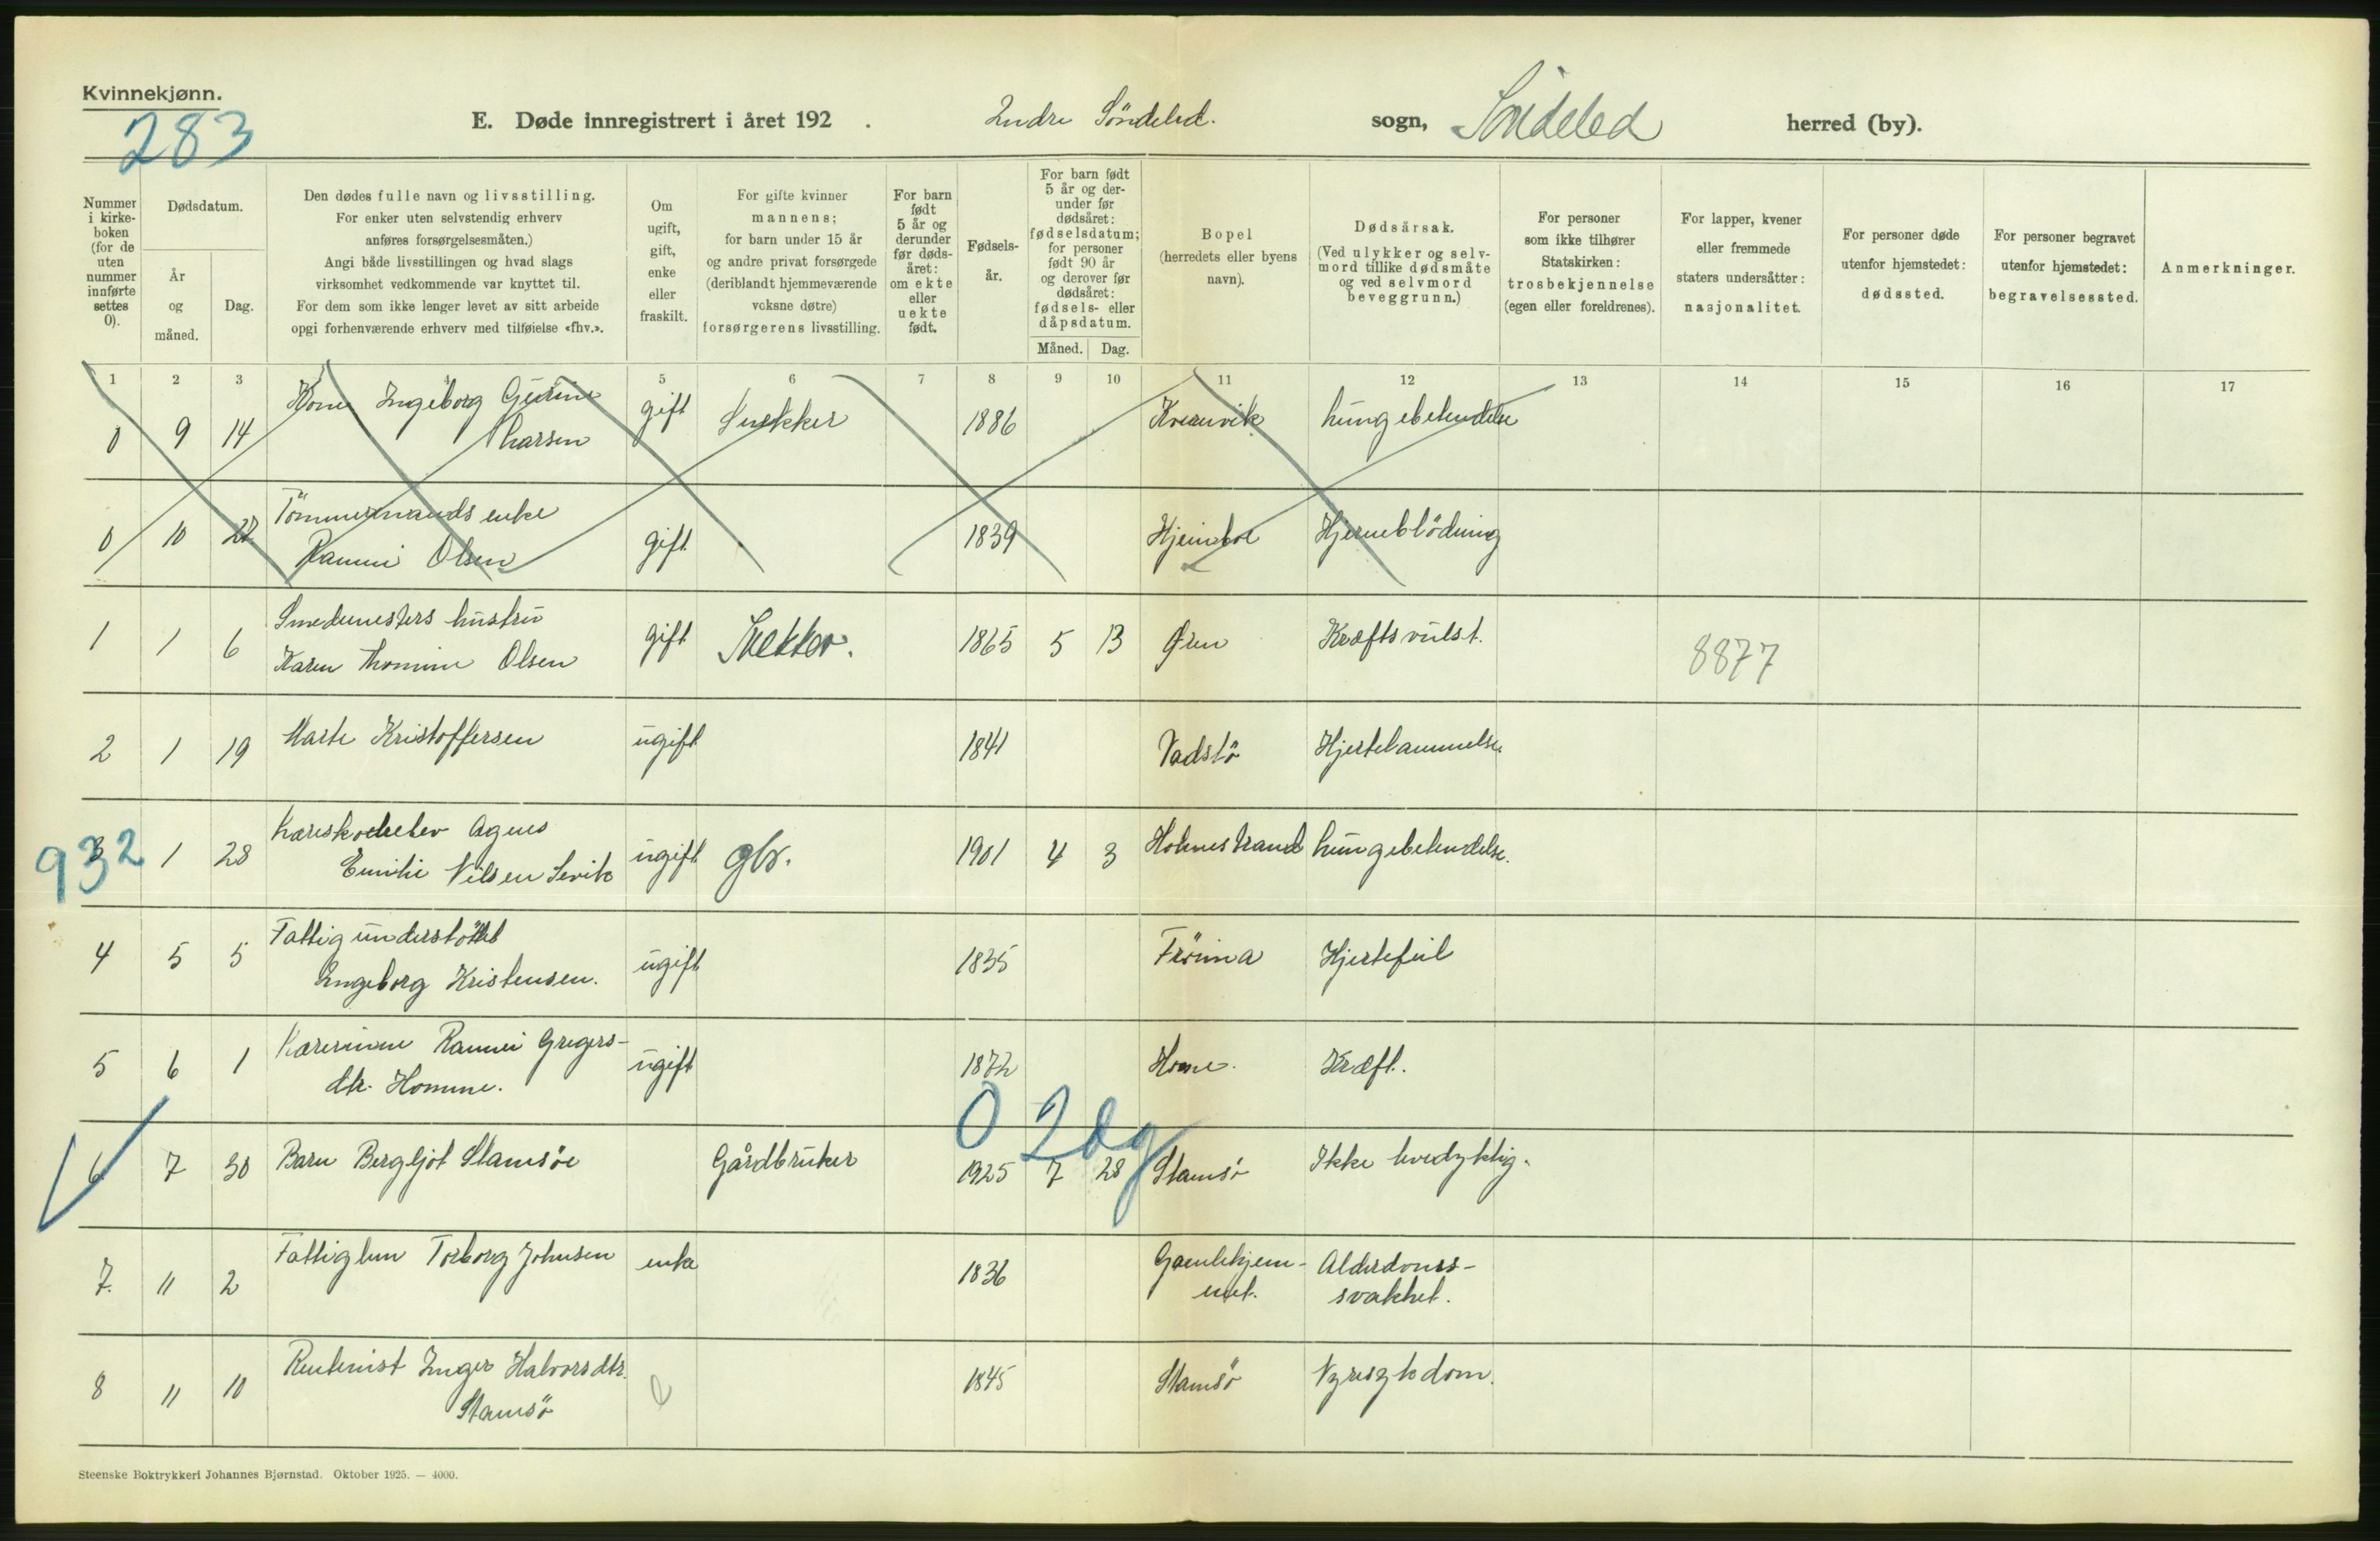 Kvinnekjønn.
283
E. Døde innregistrert i året 192 . Indre Söndeled. sogn, Söndeled herred (by).
Nummer
i kirke-
boken
(for de
uten
nummer
innførte
settes
0).
Dødsdatum.
År
og
måned.
Dag.
Den dødes fulle navn og livsstilling.
For enker uten selvstendig erhverv
anføres forsørgelsesmåten.)
Angi både livsstillingen og hvad slags
virksomhet vedkommende var knyttet til.
For dem som ikke lenger levet av sitt arbeide
opgi forhenværende erhverv med tilføielse «fhv.».
Om
ugift,
gift,
enke
eller
fraskilt.
For gifte kvinner
mannens;
for barn under 15 år
og andre privat forsørgede
(deriblandt hjemmeværende
voksne døtre)
forsørgerens livsstilling.
For barn
født
5 år og
derunder
før døds-
året:
om ekte
eller
uekte
født.
Fødsels-
år.
For barn født
5 år og der-
under før
dødsåret:
fødselsdatum;
for personer
født 90 år
og derover før
dødsåret:
fødsels- eller
dåpsdatum.
Måned. Dag.
Bopel
(herredets eller byens
navn).
Dødsårsak.
(Ved ulykker og selv-
mord tillike dødsmåte
og ved selvmord
beveggrunn.)
For personer
som ikke tilhører
Statskirken:
trosbekjennelse
(egen eller foreldrenes).
For lapper, kvener
eller fremmede
staters undersåtter:
nasjonalitet.
For personer døde
utenfor hjemstedet:
dødssted.
For personer begravet
utenfor hjemstedet:
begravelsessted.
Anmerkninger.
1 2 3 4 5 6 7 8 9 10 11 12 13 14 15 16 17
Kone Ingeborg Gurine
0 9 14 Larsen gift Snekker 1886 Kvernvik Lungebetendelse
Tömmermands enke
0 10 27 Ranni Olsen gift 1839 Hjerneblödning
Smedmesters hustru
1 1 6 Karen Thomine Olsen gift Snekker. 1865 5 13 Øren Kræftsvulst.
8877
2 1 19 Marte Kristoffersen ugift 1841 Vadstö Hjertelammelse.
Læreskoleelev Agnes
932
3 1 28 Emilie Nilsen Levik ugift gbr. 1901 4 3 Holmestrand Lungebetendelse.
Fattigunderstöttet
4 5 5 Ingeborg Kristensen. ugift 1835 Fröina Hjertefeil
Lærerinne Rannei Gregers-
5 6 1 dtr. Homme. ugift 1872 Home. Kræft.
0 2 dg
6 7 30 Barn Bergljot Stamsöe Gårdbruker 1925 7 28 Stamsö Ikke levedyktig.
7. 11 2 Fattiglem Torborg Johnsen enke 1836 Gamlehjem-
met. Alderdoms-
svakhet.
Rentenist Inger Halvorsdtr.
8 11 10 Stamsö e 1845 Stamsö Nyresykdom.
Steenske Boktrykkeri Johannes Bjørnstad. Oktober 1925. — 4000.